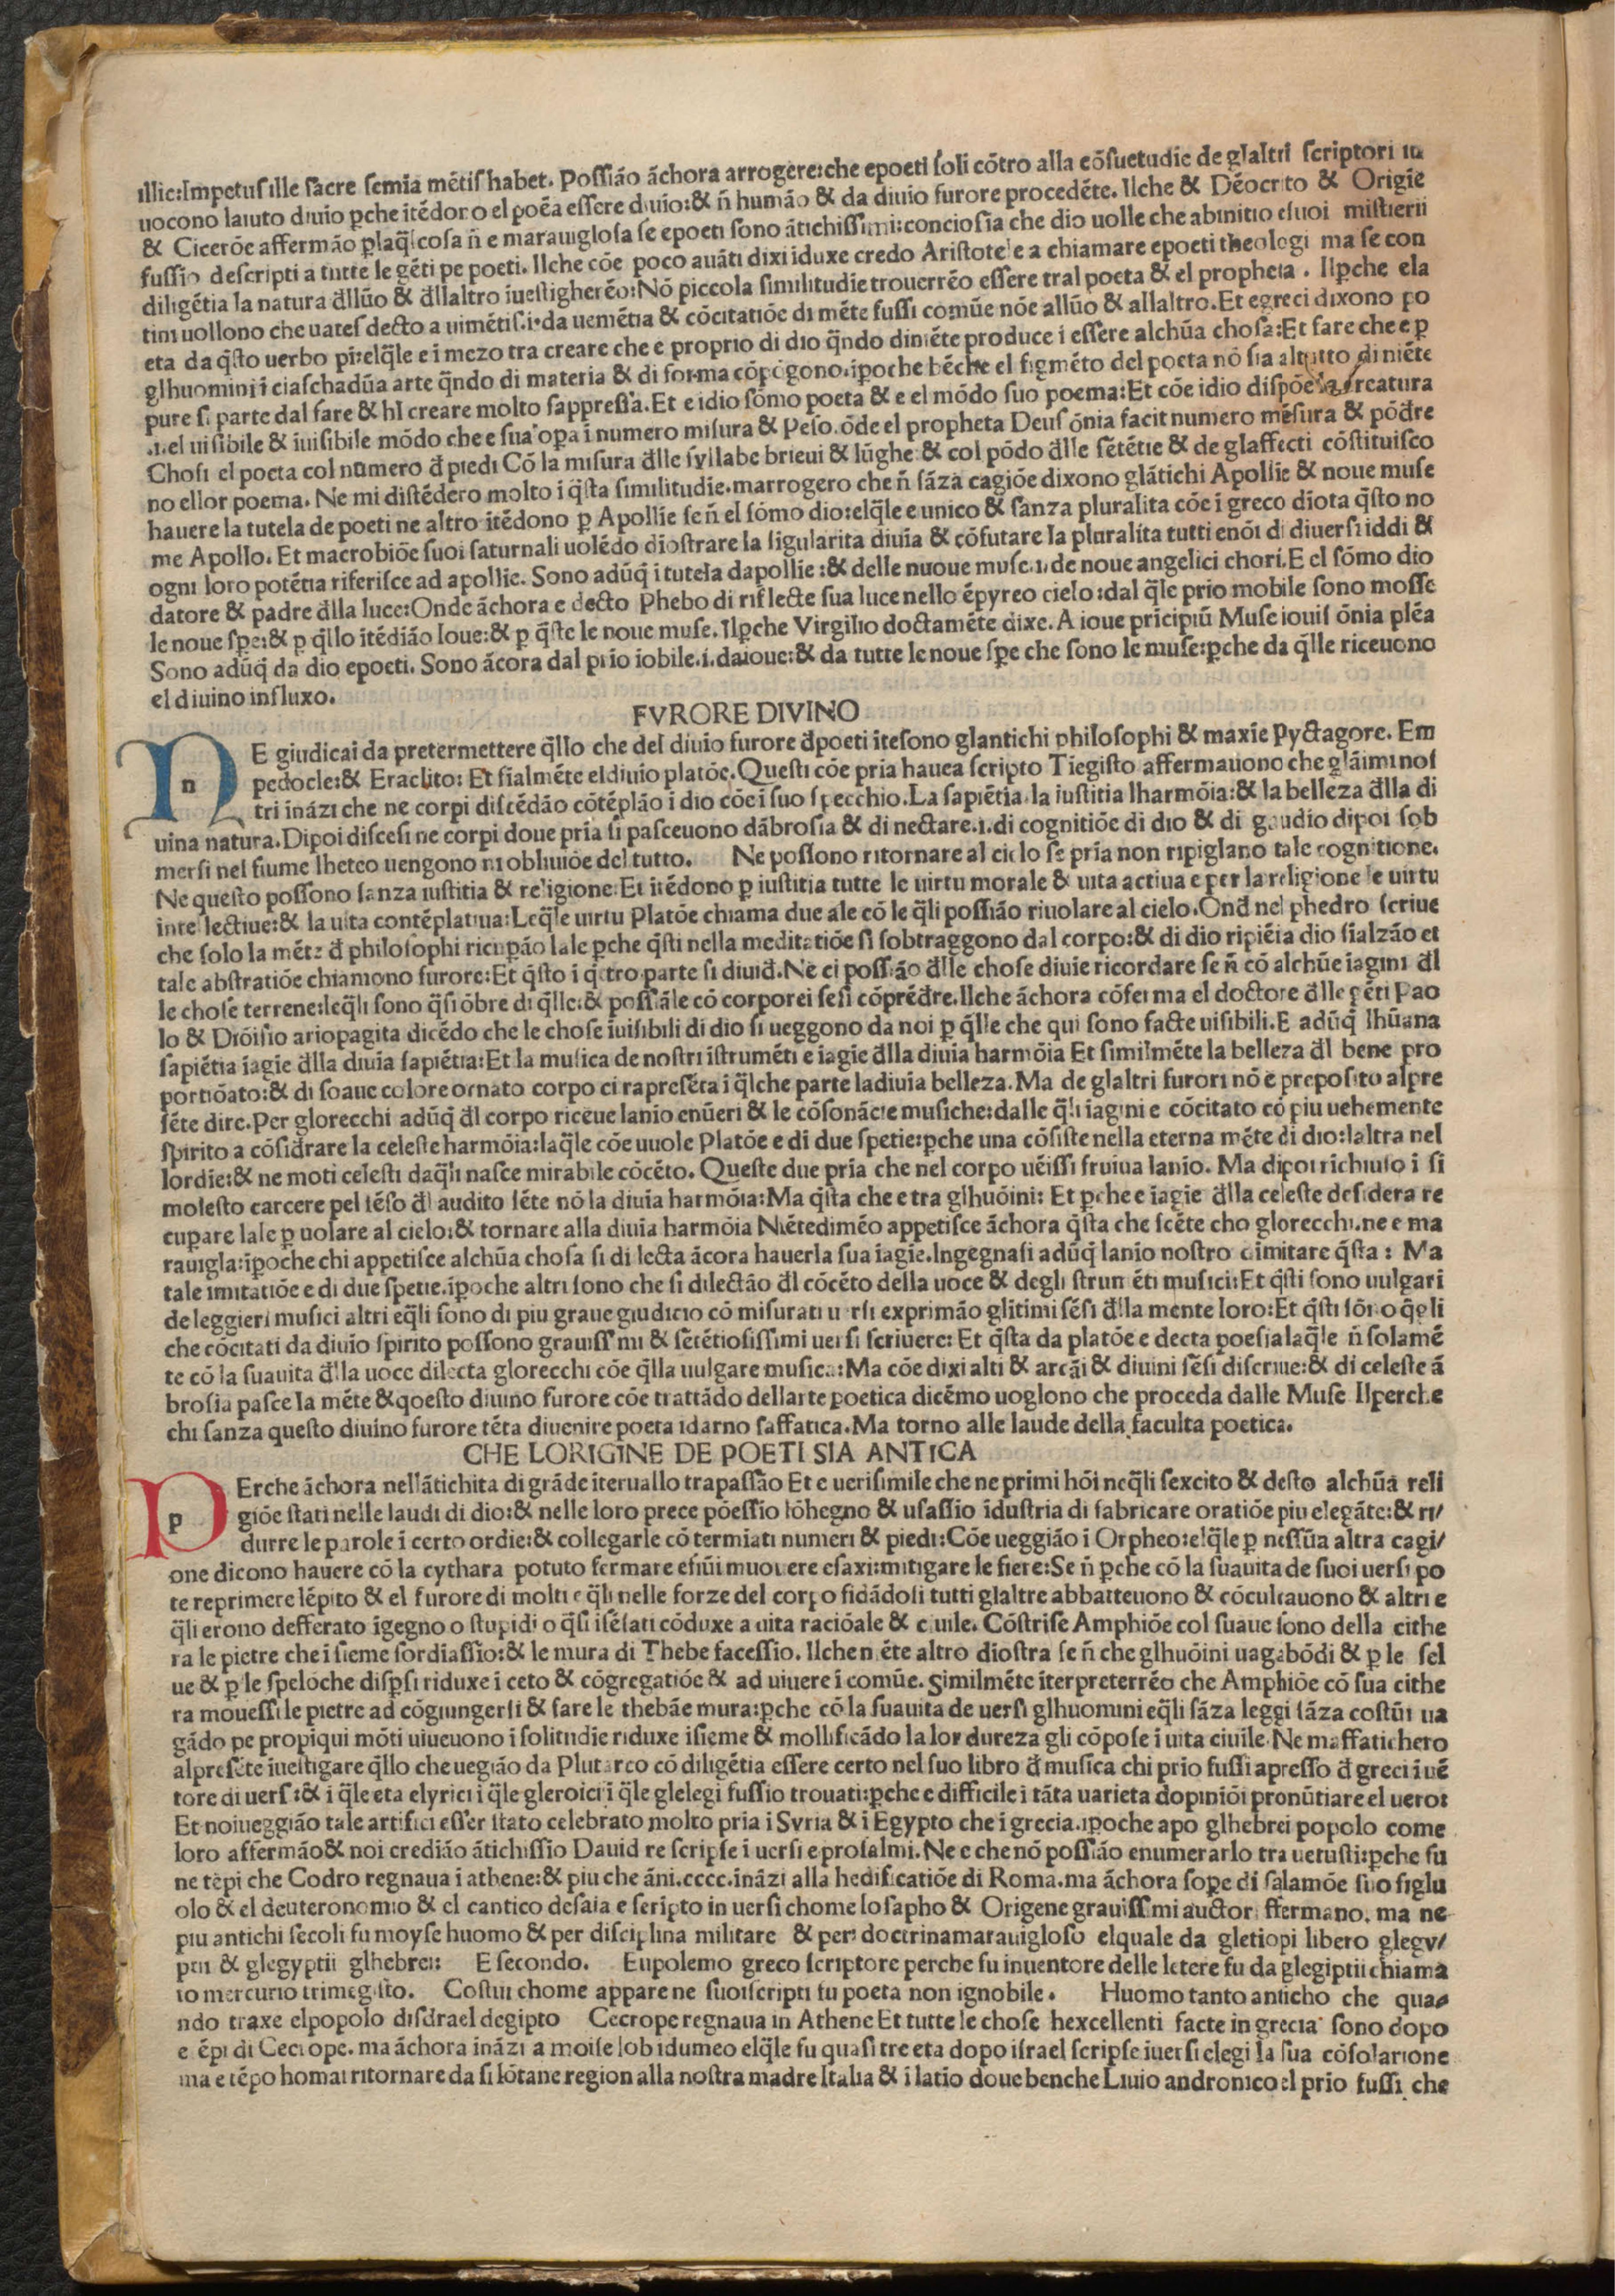 illic:Impetus ille sacre semia métis habet. Possiáo áchora arrogere:che epoeti soli cótro alla cósuetudie de glaltri scriptori in
uocono laiuto diuio ꝑche itédoro el poéa essere diuio:& ñ humáo & da diuio furore procedéte. Ilche & Déocrito & Origie
& Ciceróe affermáo ꝑlaq̄l cosa ñ e marauiglosa se epoeti sono átichissimi:conciosia che dio uolle che abinitio esuoi misterii
fussio descripti a tutte le géti pe poeti. Ilche cóe poco auáti dixi iduxe credo Aristotele a chiamare epoeti theologi ma se con
diligétia la natura đllúo & đllaltro iuestigheréo:Nó piccola similitudie trouerréo essere tral poeta & el propheta. Ilꝑche ela
tini uollono che uates decto a uimétis.i.da uemétia & cócitatióe di méte fussi comúe nóe allúo & allaltro.Et egreci dixono po
eta da q̄sto uerbo piin:elq̄le e i mezo tra creare che e proprio di dio q̄ndo diniéte produce i essere alchúa chosa:Et fare che e ꝑ
glhuomini í ciaschadúa arte q̄ndo di materia & di forma cópógono.ipoche béche el figméto del poeta nó sia altutto di niéte
pure si parte dal fare & hl creare molto sappressa.Et e idio sómo poeta & e el módo suo poema:Et cóe idio dispóe la creatura
.i.el uisibile & iuisibile módo che e sua opa i numero misura & peso.óde el propheta Deus ónia facit numero mésura & póđre
Chosi el poeta col numero đ piedi Có la misura đlle syllabe brieui & lúghe & col pódo đlle sététie & de glaffecti cóstituisco
no ellor poema. Ne mi distédero molto i q̄sta similitudie.marrogero che ñ sáza cagióe dixono glátichi Apollie & noue muse
hauere la tutela de poeti ne altro itédono ꝑ Apollie se ñ el sómo dio:elq̄le e unico & sanza pluralita cóe i greco díota q̄sto no
me Apollo. Et macrobióe suoi saturnali uolédo diostrare la sigularita diuia & cófutare la pluralita tutti enói di diuersi iddi &
ogni loro potétia riferisce ad apollie. Sono adúq̄ i tutela dapollie:& delle nuoue muse.i.de noue angelici chori.E el sómo dio
datore & padre đlla luce:Onde áchora e decto Phebo di riflecte sua luce nello épyreo cielo:dal q̄le prio mobile sono mosse
le noue spe:& p q̄llo itédiáo Ioue:& ꝑ q̄ste le noue muse. Ilꝑche Virgilio doctaméte dixe. A ioue pricipiú Muse iouis ónia pléa
Sono adúq̄ da dio epoeti. Sono ácora dal prio iobile.i.daioue:& da tutte le noue spe che sono le muse:ꝑche da q̄lle riceuono
el diuino influxo.
FVRORE DIVINO
n E giudicai da pretermettere q̄llo che del diuio furore đpoeti itesono glantichi philosophi & maxie Pyctagore. Em
pedocle:& Eraclito: Et fialméte el diuio platóe.Questi cóe pria hauea scripto Tiegisto affermauono che gláimi nos
tri inázi che ne corpi discédáo cótépláo i dio cóe i suo specchio.La sapiétia.la iustitia lharmóia:& la belleza đlla di
uina natura.Dipoi discesi ne corpi doue pria si pasceuono dábrosia & di nectare.i.di cognitióe di dio & di gaudio dipoi sob
mersi nel fiume lheteo uengono ni obliuióe del tutto. Ne possono ritornare al cielo se pria non ripiglano tale cognitione.
Ne questo possono sanza iustitia & religione:Et itédono ꝑ iustitia tutte le uirtu morale & uita actiua e per la religione le uirtu
intellectiue:& la uita contéplatiua:Leq̄le uirtu Platóe chiama due ale có le q̄li possiáo riuolare al cielo.Onđ nel phedro scriue
che solo la méte đ philosophi ricuꝑáo lale ꝑche q̄sti nella meditatióe si sobtraggono dal corpo:& di dio ripiéia dio sialzáo et
tale abstratióe chiamono furore:Et q̄sto i q̄tro parte si diuiđ.Ne ci possiáo đlle chose diuie ricordare se ñ có alchúe iagini đl
le chose terrene:leq̄li sono q̄si óbre di q̄lle:& possiále có corporei sesi cópréđre.Ilche áchora cóferma el doctore đlle géti Pao
lo & Dióisio ariopagita dicédo che le chose iuisibili di dio si ueggono da noi ꝑ q̄lle che qui sono facte uisibili.E adúq̄ lhúana
sapiétia iagie đlla diuia sapiétia:Et la musica de nostri istruméti e iagie đlla diuia harmóia Et similméte la belleza đl bene pro
portióato:& di soaue colore ornato corpo ci rapreséta i q̄lche parte ladiuia belleza.Ma de glaltri furori nó e proposito alpre
séte dire.Per glorecchi adúq̄ đl corpo riceue lanio enúeri & le cósonácie musiche:dalle q̄li iagini e cócitato có piu uehemente
spirito a cósiđrare la celeste harmóia:laq̄le cóe uuole Platóe e di due spetie:ꝑche una cósiste nella eterna méte di dio:laltra nel
lordie:& ne moti celesti daq̄li nasce mirabile cócéto. Queste due pria che nel corpo uéissi fruiua lanio. Ma dipoi richiuso i si
molesto carcere pel séso đl audito séte nó la diuia harmóia:Ma q̄sta che e tra glhuóini: Et ꝑche e iagie đlla celeste desidera re
cuꝑare lale ꝑ uolare al cielo:& tornare alla diuia harmóia Niétediméo appetisce áchora q̄sta che scéte cho glorecchi.ne e ma
rauigla:ipoche chi appetisce alchúa chosa si dilecta ácora hauerla sua iagie.Ingegnasi adúq̄ lanio nostro dimitare q̄sta: Ma
tale imitatióe e di due spetie.ipoche altri sono che si dilectáo đl cócéto della uoce & degli struméti musici:Et q̄sti sono uulgari
de leggieri musici altri eq̄li sono di piu graue giudicio có misurati uersi exprimáo glitimi sési đlla mente loro:Et q̄sti sóno q̄gli
che cócitati da diuio spirito possono grauissimi & sététiosissimi uersi scriuere: Et q̄sta da platóe e decta poesia laq̄le ñ solamé
te có la suauita đlla uoce dilecta glorecchi cóe q̄lla uulgare musica:Ma cóe dixi alti & arcái & diuini sési discriue:& di celeste á
brosia pasce la méte & qoesto diuino furore cóe trattádo dellarte poetica dicémo uoglono che proceda dalle Muse Ilperche
chi sanza questo diuino furore téta diuenire poeta idarno saffatica.Ma torno alle laude della faculta poetica.
CHE LORIGINE DE POETI SIA ANTICA
p Erche áchora nellátichita di gráde iteruallo trapassáo Et e uerisimile che ne primi hói neq̄li sexcito & desto alchúa reli
gióe stati nelle laudi di dio:& nelle loro prece póessio lóhegno & usassio idustria di fabricare oratióe piu elegáte:& ri/
durre le parole i certo ordie:& collegarle có termiati numeri & piedi:Cóe ueggiáo i Orpheo:elq̄le ꝑ nessúa altra cagi/
one dicono hauere có la cythara potuto fermare efiúi muouere esaxi:mitigare le fiere:Se ñ ꝑche có la suauita de suoi uersi po
te reprimere lépito & el furore di molti eq̄li nelle forze del corpo fidádosi tutti glaltre abbatteuono & cóculcauono & altri e
q̄li erono defferato igegno o stupidi o q̄si isésati códuxe a uita racióale & ciuile. Cóstrise Amphióe col suaue sono della cithe
ra le pietre che i sieme sordiassio:& le mura di Thebe facessio. Ilche niéte altro diostra se ñ che glhuóini uagabódi & ꝑ le sel
ue & ꝑ le speloche disꝑsi riduxe i ceto & cógregatióe & ad uiuere i comúe. Similméte iterpreterréo che Amphióe có sua cithe
ra mouessi le pietre ad cógiungersi & fare le thebáe mura:ꝑche có la suauita de uersi glhuomini eq̄li sáza leggi sáza costúi ua
gádo pe propiqui móti uiueuono i solitudie riduxe isieme & mollificádo la lor dureza gli cópose i uita ciuile.Ne maffatichero
alpreséte iuestigare q̄llo che uegiáo da Plutarco có diligétia essere certo nel suo libro đ musica chi prio fussi apresso đ greci iué
tore di uersi:& i q̄le eta elyrici i q̄le gleroici i q̄le glelegi fussio trouati:ꝑche e difficile i táta uarieta dopinióï pronútiare el uero:
Et noiueggiáo tale artifici esser stato celebrato molto pria i Syria & i Egypto che i grecia.ipoche apo glhebrei popolo come
loro affermáo& noi crediáo átichissio Dauid re scripse i uersi eprosalmi.Ne e che nó possiáo enumerarlo tra uetusti:ꝑche fu
ne tépi che Codro regnaua i athene:& piu che áni.cccc.inázi alla hedificatióe di Roma.ma áchora sope di salamóe suo figlu
olo & el deuteronomio & el cantico desaia e scripto in uersi chome Iosapho & Origene grauissimi auctori ffermano. ma ne
piu antichi secoli fu moyse huomo & per disciplina militare & per doctrinamarauigloso elquale da gletiopi libero glegy/
ptii & glegyptii glhebrei: E secondo. Eupolemo greco scriptore perche fu inuentore delle letere fu da glegiptii chiama
to mercurio trimegisto. Costui chome appare ne suoiscripti fu poeta non ignobile. Huomo tanto anticho che qua/
ndo traxe elpopolo disdrael degipto Cecrope regnaua in Athene Et tutte le chose hexcellenti facte in grecia sono dopo
e épi di Cecrope. ma áchora inázi a moise Iob idumeo elq̄le fu quasi tre eta dopo israel scripse iuersi elegi la sua cósolatione
ma e tépo homai ritornare da si lótane region alla nostra madre Italia & i latio doue benche Liuio andronico el prio fussi che